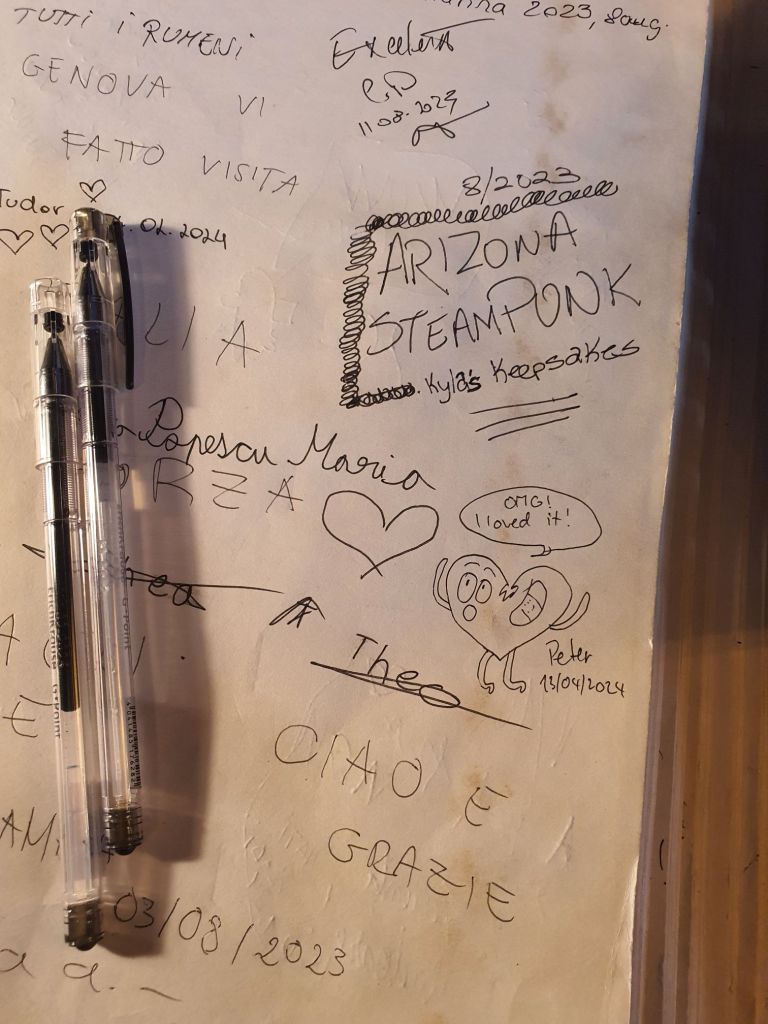 2023, 8aug.
TUTTI I RUMENI
GENOVA VI
FATTO VISITA
11 08. 2023
Tudor
.02.2024
8/2023
ARIZONA
STEAMPUNK
Kyla's Keepsakes
LIA
Popescu Maria
RZA
OMG!
I loved it!
Peter
13/04/2024
Theo
CIAO E
GRAZIE
03/08/2023